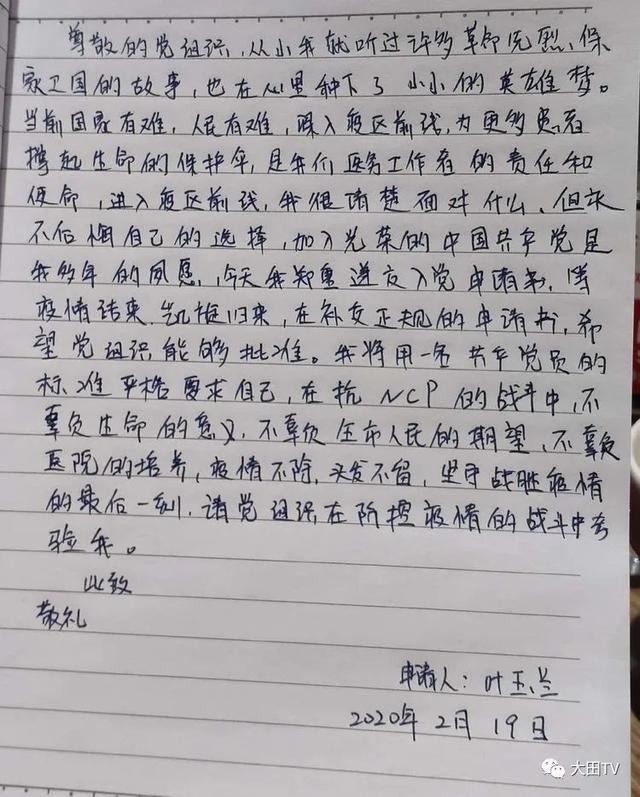 尊敬的党组织,从小我就听过许多革命先烈、保
家卫国的故事,也在心里种下了小小的英雄梦。
当前国家有难,人民有难,深入疫区前线,为更多患者
撑起生命的保护伞,是我们医务工作者的责任和
使命,进入疫区前线,我很清楚面对什么、但永
不后悔自己的选择,加入光荣的中国共产党是
我多年的夙愿,今天我郑重递交入党申请书,等
疫情结束、凯旋归来,在补交正规的申请书,希
望党组织能够批准。我将用一名共产党员的
标准严格要求自己,在抗NCP的战斗中,不
辜负生命的意义、不辜负全市人民的期望、不辜负
医院的培养,疫情不除,头发不留,坚守战胜疫情
的最后一刻,请党组织在防控疫情的战斗中考
验我。
此致
敬礼
申请人:叶玉兰
2020年2月19日
大田TV